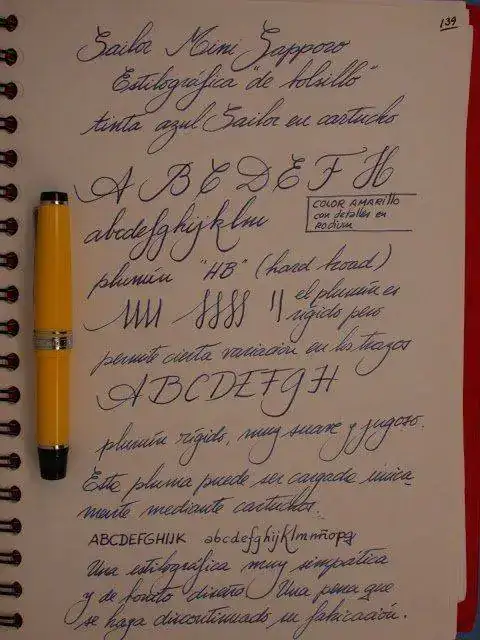 139
Sailor Mini Sapporo
Estilográfica "de bolsillo"
tinta azul Sailor en cartucho
A B C D E F H
COLOR AMARILLO
con detalles en
RODIUM
abcdefghijklm
plumín "HB" (hard broad)
el plumín es
rígido pero
permite cierta variación en los trazos
A B C D E F G H
plumín rígido, muy suave y jugoso.
Este pluma puede ser cargada única
mente mediante cartuchos.
ABCDEFGHIJK abcdefghijklmnñopq
Una estilográfica muy simpática
y de bonito diseño Una pena que
se haya discontinuado su fabricación.